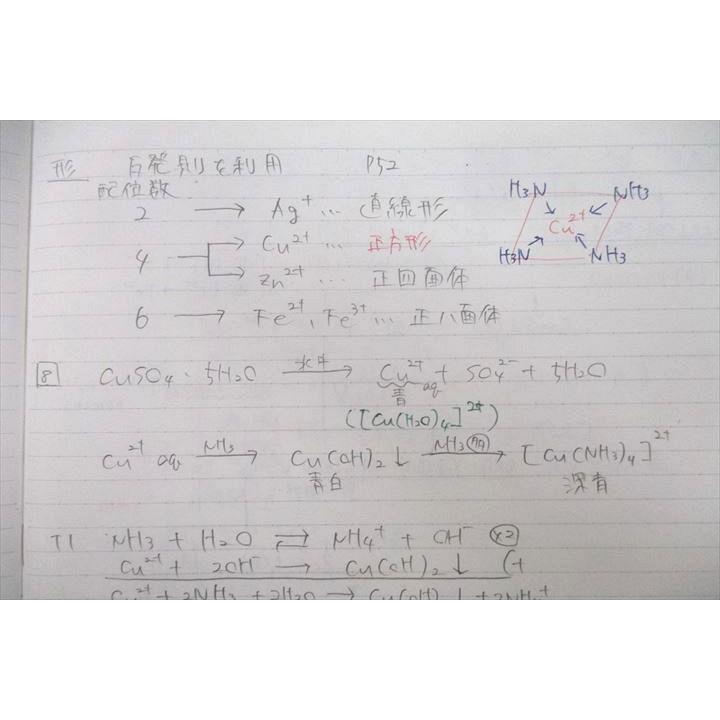 形 反発則を利用 P52
配位数
2 → Ag⁺ … 直線形
4 → Cu²⁺ … 正方形
→ Zn²⁺ … 正四面体
6 → Fe²⁺, Fe³⁺ … 正八面体
H₃N NH₃
Cu²⁺
H₃N NH₃
8 CuSO₄・5H₂O 水中→ Cu²⁺aq + SO₄²⁻ + 5H₂O
青
([Cu(H₂O)₄]²⁺)
Cu²⁺ aq NH₃→ Cu(OH)₂↓ NH₃→ [Cu(NH₃)₄]²⁺
青白 深青
T1 NH₃ + H₂O ⇄ NH₄⁺ + OH⁻ ×2
Cu²⁺ + 2OH⁻ → Cu(OH)₂↓ (+
Cu²⁺ + 2NH₃ + 2H₂O → Cu(OH)₂↓ + 2NH₄⁺